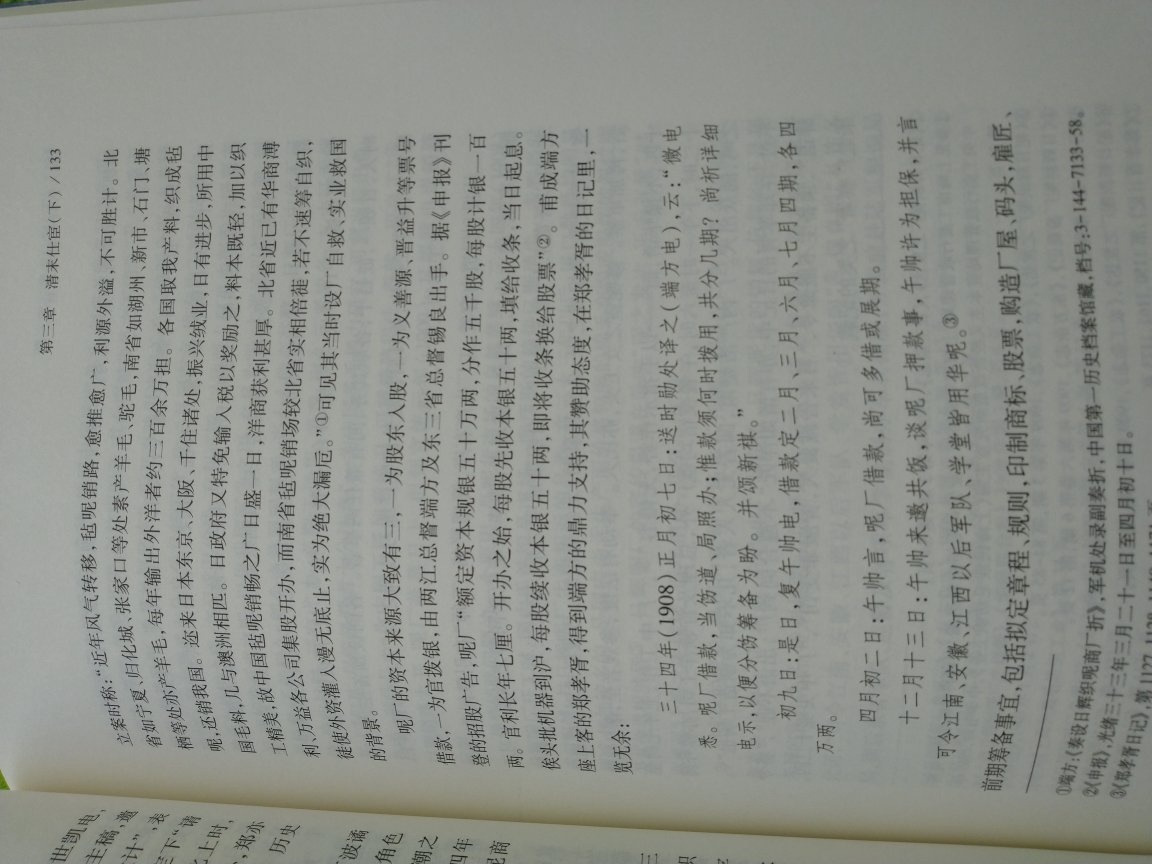 第三章 清末仕宦(下)/133
立案时称：“近年风气转移，毡呢销路，愈推愈广，利源外溢，不可胜计。北
省如宁夏、归化城、张家口等处素产羊毛、驼毛，南省如湖州、新市、石门、塘
栖等处亦产羊毛，每年输出外洋者约三百余万担。各国取我产料，织成毡
呢，还销我国。迩来日本东京、大阪、千住诸处，振兴绒业，日有进步，所用中
国毛料，几与澳洲相匹。日政府又特免输入税以奖励之，料本既轻，加以织
工精美，故中国毡呢销畅之广日盛一日，洋商获利甚厚。北省近已有华商溥
利、万益各公司集股开办，而南省毡呢销场较北省实相倍蓰，若不速筹自织，
徒使外资灌入漫无底止，实为绝大漏卮。”①可见其当时设厂自救、实业救国
的背景。
呢厂的资本来源大致有三，一为股东入股，一为义善源、晋益升等票号
借款，一为官拨银，由两江总督端方及东三省总督锡良出手。据《申报》刊
登的招股广告，呢厂“额定资本规银五十万两，分作五千股，每股计银一百
两。官利长年七厘。开办之始，每股先收本银五十两，填给收条，当日起息。
俟头批机器到沪，每股续收本银五十两，即将收条换给股票”②。甫成端方
座上客的郑孝胥，得到端方的鼎力支持，其赞助态度，在郑孝胥的日记里，一
览无余：
三十四年(1908)正月初七日：送时勋处译之(端方电)，云：“微电
悉。呢厂借款，当饬道、局照办；惟款须何时拨用，共分几期？尚祈详细
电示，以便分饬筹备为盼。并颂新祺。”
初九日：是日，复午帅电，借款定二月、三月、六月、七月四期，各四
万两。
四月初二日：午帅言，呢厂借款，尚可多借或展期。
十二月十三日：午帅来邀共饭，谈呢厂押款事，午帅许为担保，并言
可令江南、安徽、江西以后军队、学堂皆用华呢。③
前期筹备事宜，包括拟定章程、规则，印制商标、股票，购造厂屋、码头，雇匠、
①端方：《奏设日辉织呢商厂折》，军机处录副奏折，中国第一历史档案馆藏，档号：3-144-7133-58。
②《申报》，光绪三十三年三月二十一日至四月初十日。
③《郑孝胥日记》，第1127
世凯电，
主稿，遗
计”，表
下“诸
上时，
，郑亦
历史
波谲
角色
潮之
四年
呢商
三
织